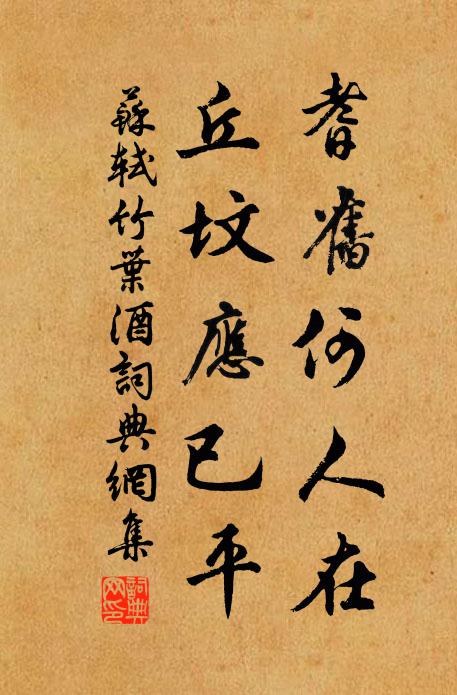 耆舊何人在
丘墳應已平
蘇軾竹葉酒詞典網集
詞典
网印